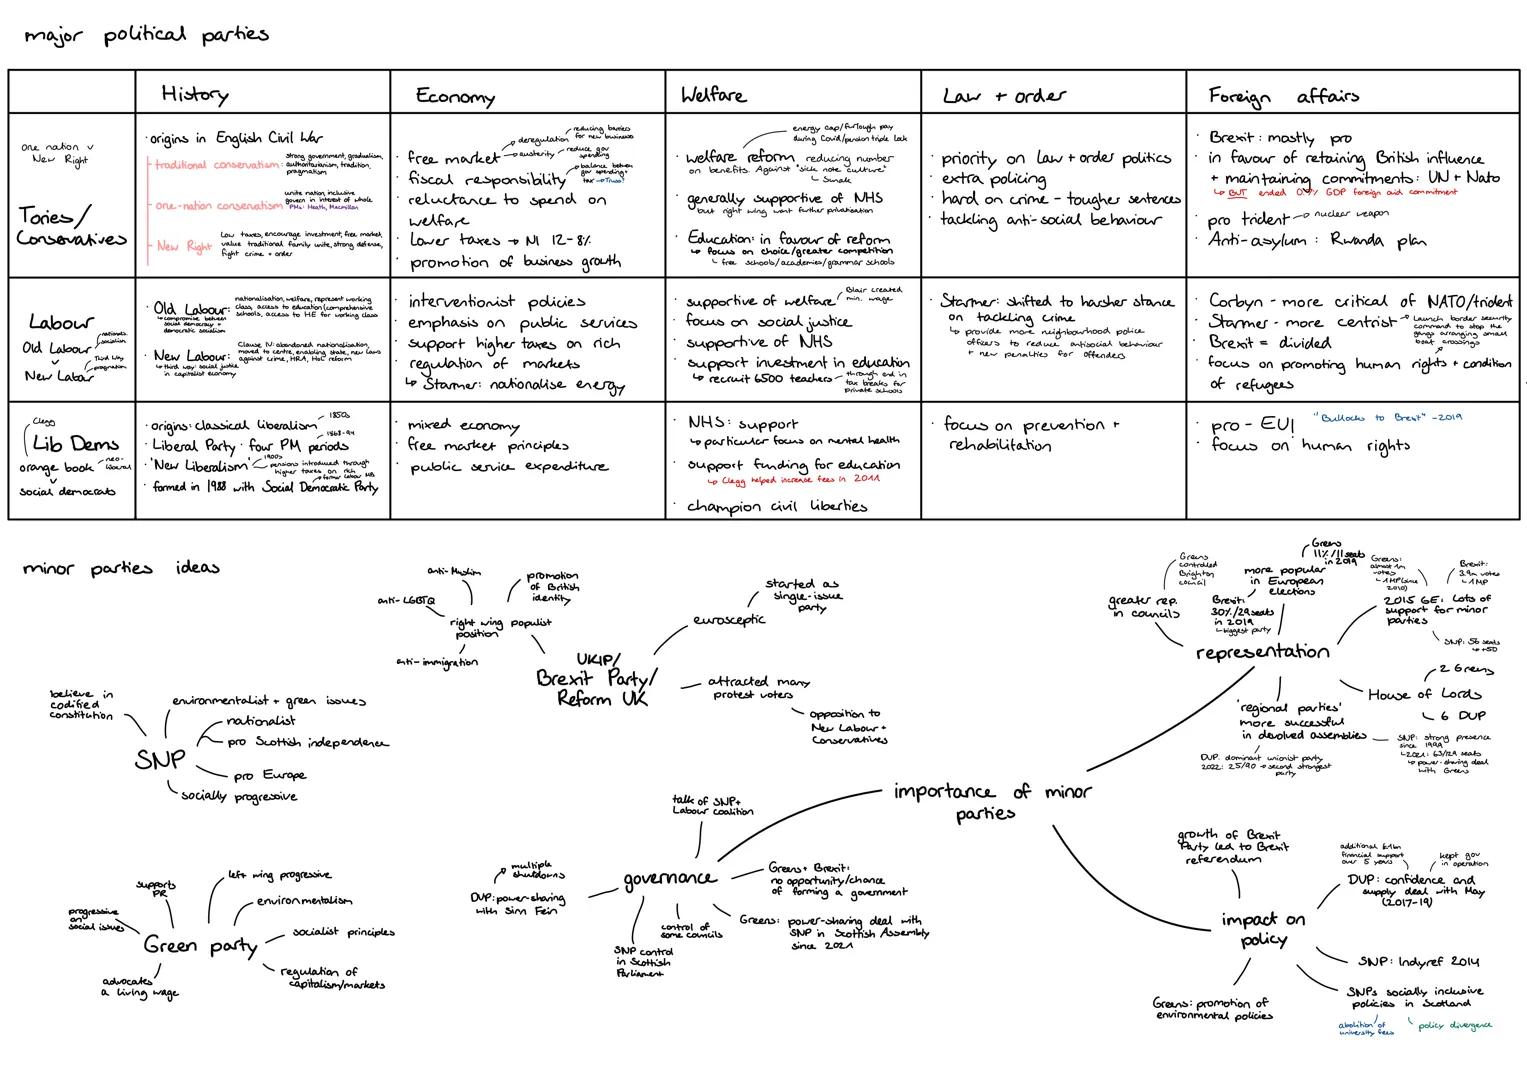 major political parties
History
Economy
Welfare
Law + order
Foreign affairs
one nation v
New Right
Tories/
Conservatives
· origins in English Civil War
traditional conservatism:
strong government, gradualism,
authoritarianism, tradition,
pragmatism
one-nation conservatism
unite nation, inclusive
govern in interest of whole
PMs: Heath, Macmillan
New Right
Low taxes, encourage investment, free market,
value traditional family unite, strong defense,
fight crime + order
· free market
deregulation
reducing barriers
for new business
austerity
reduce gov
spending
· fiscal responsibility
balance between
gov spending +
tax → Truss?
· reluctance to spend on
welfare
· Lower taxes → NI 12-8%
· promotion of business growth
energy cap/furlough pay
during Covid/pension triple lock
· welfare reform reducing number
on benefits. Against "sick note culture"
↳ Sunak
· generally supportive of NHS
but right wing want further privatisation
· Education: in favour of reform
↳ focus on choice/greater competition
↳ free schools/academies/grammar schools
· priority on law + order politics
· extra policing
· hard on crime - tougher sentences
· tackling anti-social behaviour
· Brexit: mostly pro
· in favour of retaining British influence
+ maintaining commitments: UN + Nato
↳ BUT ended 0.7% GDP foreign aid commitment
· pro trident → nuclear weapon
· Anti-asylum: Rwanda plan
Labour
Old Labour
nationalis.
socialism
v
New Labar
Third Way
pragmatism
· Old Labour:
nationalisation, welfare, represent working
class, access to education (comprehensive
schools, access to HE for working class
↳ compromise between
social democracy +
democratic socialism
· New Labour:
Clause IV: abandoned nationalisation,
moved to centre, enabling state, new laws
against crime, HRA, HoL reform
↳ third way: social justice
in capitalist economy
· interventionist policies
· emphasis on public services
· support higher taxes on rich
· regulation of markets
↳ Starmer: nationalise energy
· supportive of welfare
Blair created
min. wage
· focus on social justice
· supportive of NHS
· support investment in education
↳ recruit 6500 teachers
through end in
tax breaks for
private schools
· Starmer: shifted to harsher stance
on tackling crime
↳ provide more neighbourhood police
officers to reduce antisocial behaviour
+ new penalties for offenders
· Corbyn - more critical of NATO/trident
· Starmer - more centrist
Launch border security
command to stop the
gangs arranging small
boat crossings
· Brexit = divided
· focus on promoting human rights + condition
of refugees
Clegg
Lib Dems
orange book
neo-
liberal
v
social democrats
· origins: classical liberalism
1850s
· Liberal Party: four PM periods
1868-94
· 'New Liberalism'
1900s
pensions introduced through
higher taxes on rich
former Labour MPs
· formed in 1988 with Social Democratic Party
· mixed economy
· free market principles
· public service expenditure
· NHS: support
↳ particular focus on mental health
· support funding for education
↳ Clegg helped increase fees in 2011
· champion civil liberties
· focus on prevention +
rehabilitation
· pro-EU!
"Bullocks to Brexit" -2019
· focus on human rights
minor parties ideas
anti-Muslim
anti-LGBTQ
promotion
of British
identity
right wing populist
position
anti-immigration
UKIP/
Brexit Party/
Reform UK
started as
single-issue
party
eurosceptic
attracted many
protest voters
opposition to
New Labour +
Conservatives
believe in
codified
constitution
environmentalist + green issues
nationalist
pro Scottish independence
SNP
pro Europe
socially progressive
left wing progressive
supports
PR
environmentalism
progressive
on
social issues
Green party
socialist principles
regulation of
capitalism/markets
advocates
a living wage
importance of minor
parties
representation
greater rep.
in councils
Greens
controlled
Brighton
council
more popular
in European
elections
Greens
11%/11 seats
in 2019
Brexit:
30%/29 seats
in 2019
↳ biggest party
2015 GE: Lots of
support for minor
parties
Greens:
almost 1m
votes
↳ 1 MP (since
2010)
Brexit:
3.9m votes
↳ 1 MP
SNP: 56 seats
↳ +50
House of Lords
2 Greens
6 DUP
'regional parties'
more successful
in devolved assemblies
DUP: dominant unionist party
2022: 25/90 → second strongest
party
SNP: strong presence
since 1999
↳ 2021: 63/129 seats
↳ power-sharing deal
with Greens
talk of SNP +
Labour coalition
governance
multiple
shutdowns
DUP: power-sharing
with Sinn Fein
SNP control
in Scottish
Parliament
control of
some councils
Greens + Brexit:
no opportunity/chance
of forming a government
Greens: power-sharing deal with
SNP in Scottish Assembly
since 2021
impact on
policy
growth of Brexit
Party led to Brexit
referendum
additional £1bn
financial support
over 5 years
kept gov
in operation
DUP: confidence and
supply deal with May
(2017-19)
SNP: Indyref 2014
SNPs socially inclusive
policies in Scotland
abolition of
university fees
policy divergence
Greens: promotion of
environmental policies